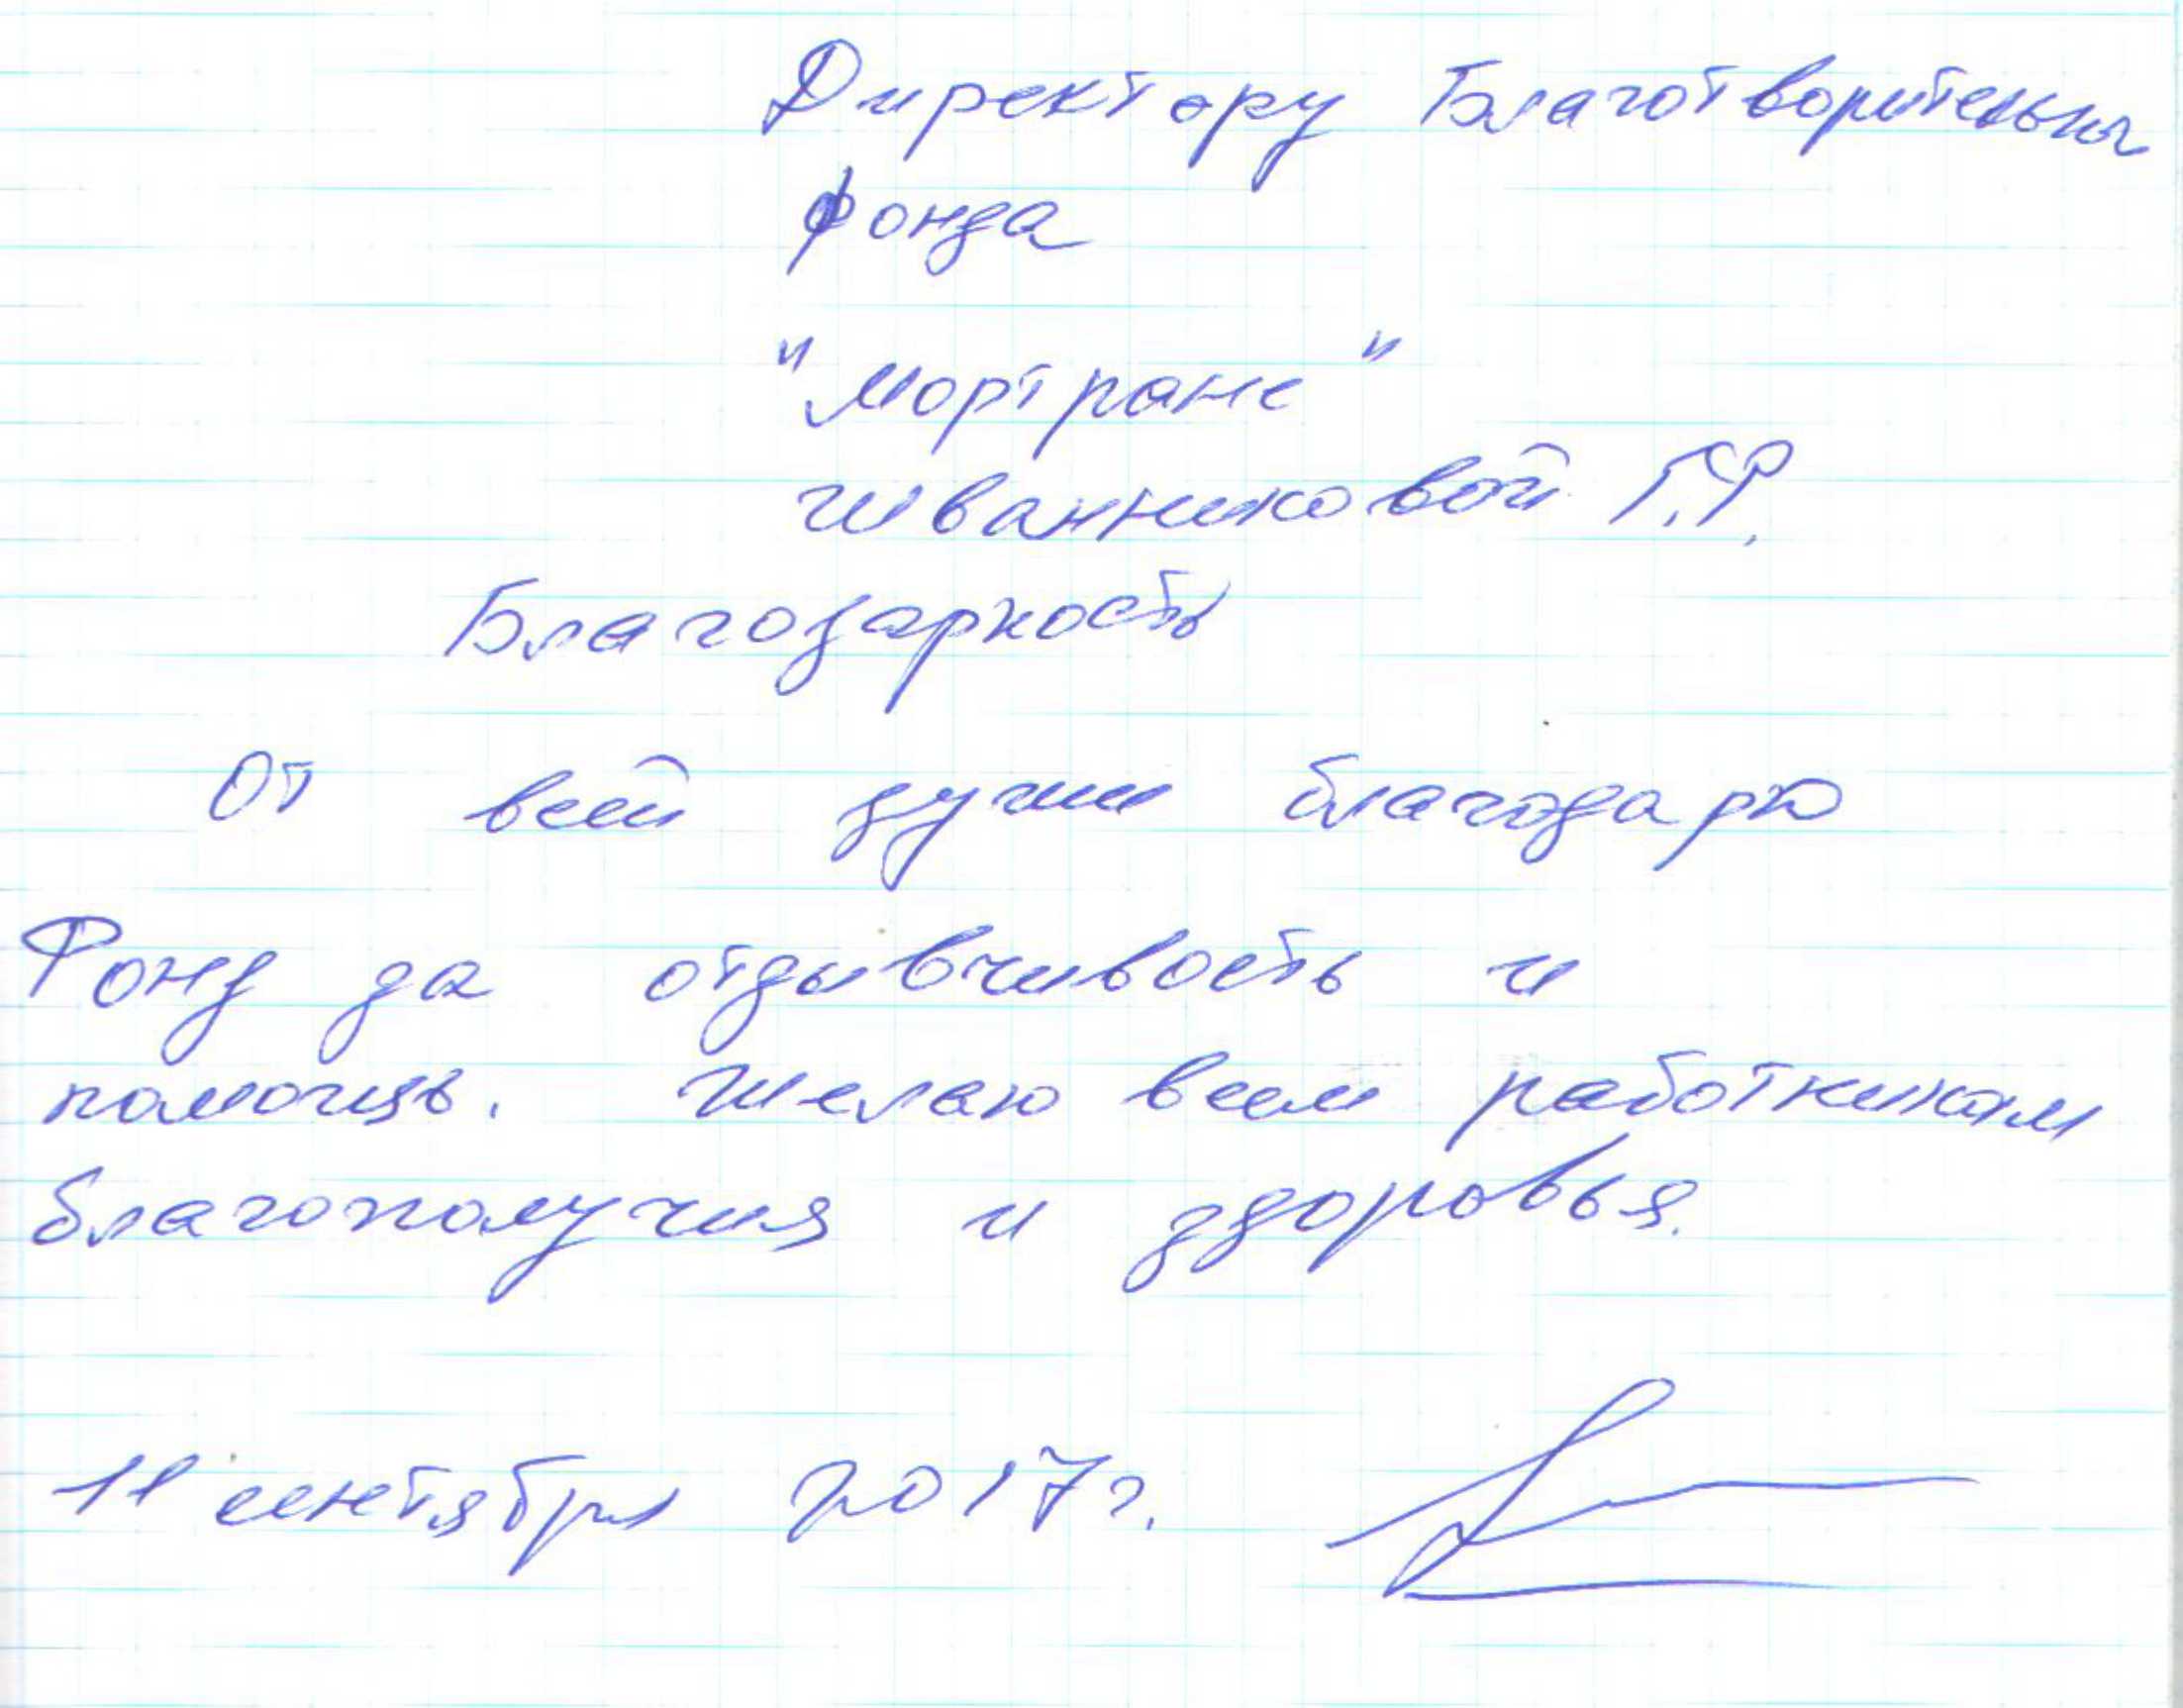 Директору Благотворительног
фонда
"Мортранс"
Иванниковой Г.Р.
Благодарность
От всей души благодарю
Фонд за отзывчивость и
помощь. Желаю всем работникам
благополучия и здоровья.
11 сентября 2017г.